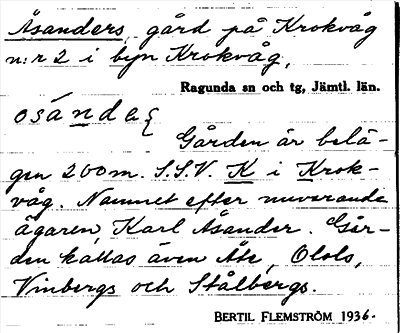 Åsanders, gård på Krokvåg
n:r 2 i byn Krokvåg,
Ragunda sn och tg, Jämtl. län.
Gården är belä-
gen 200m. S.S.V. K i Krok-
våg. Namnet efter nuvarande
ägaren, Karl Åsander. Går-
den kallas även Åte, Olols,
Vinbergs och Stålbergs.
BERTIL FLEMSTRÖM 1936.